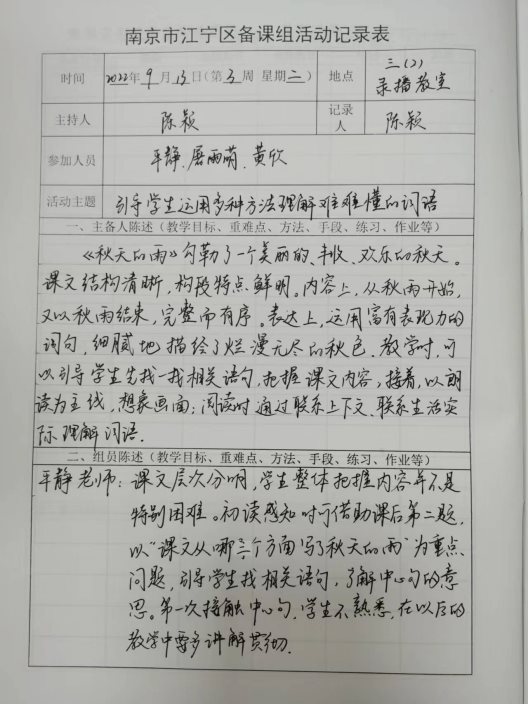 南京市江宁区备课组活动记录表
时间 2022年9月13日(第3周 星期二) 地点 三(2)录播教室
主持人 陈颖 记录人 陈颖
参加人员 平静、屠雨萌、黄欣
活动主题 引导学生运用多种方法理解难难懂的词语
一、主备人陈述(教学目标、重难点、方法、手段、练习、作业等)
《秋天的雨》勾勒了一个美丽的、丰收、欢乐的秋天。
课文结构清晰,构段特点鲜明。内容上,从秋雨开始,
又以秋雨结束,完整而有序。表达上,运用富有表现力的
词句,细腻地描绘了烂漫无尽的秋色。教学时,可
以引导学生先找一找相关语句,把握课文内容,接着,以朗
读为主线,想象画面;阅读时通过联系上下文、联系生活实
际理解词语.
二、组员陈述(教学目标、重难点、方法、手段、练习、作业等)
平静老师:课文层次分明,学生整体把握内容并不是
特别困难。初读感知时可借助课后第二题,
以“课文从哪三个方面写了秋天的雨”为重点
问题,引导学生找相关语句,了解中心句的意
思。第一次接触中心句,学生不熟悉,在以后的
教学中要多讲解贯彻.